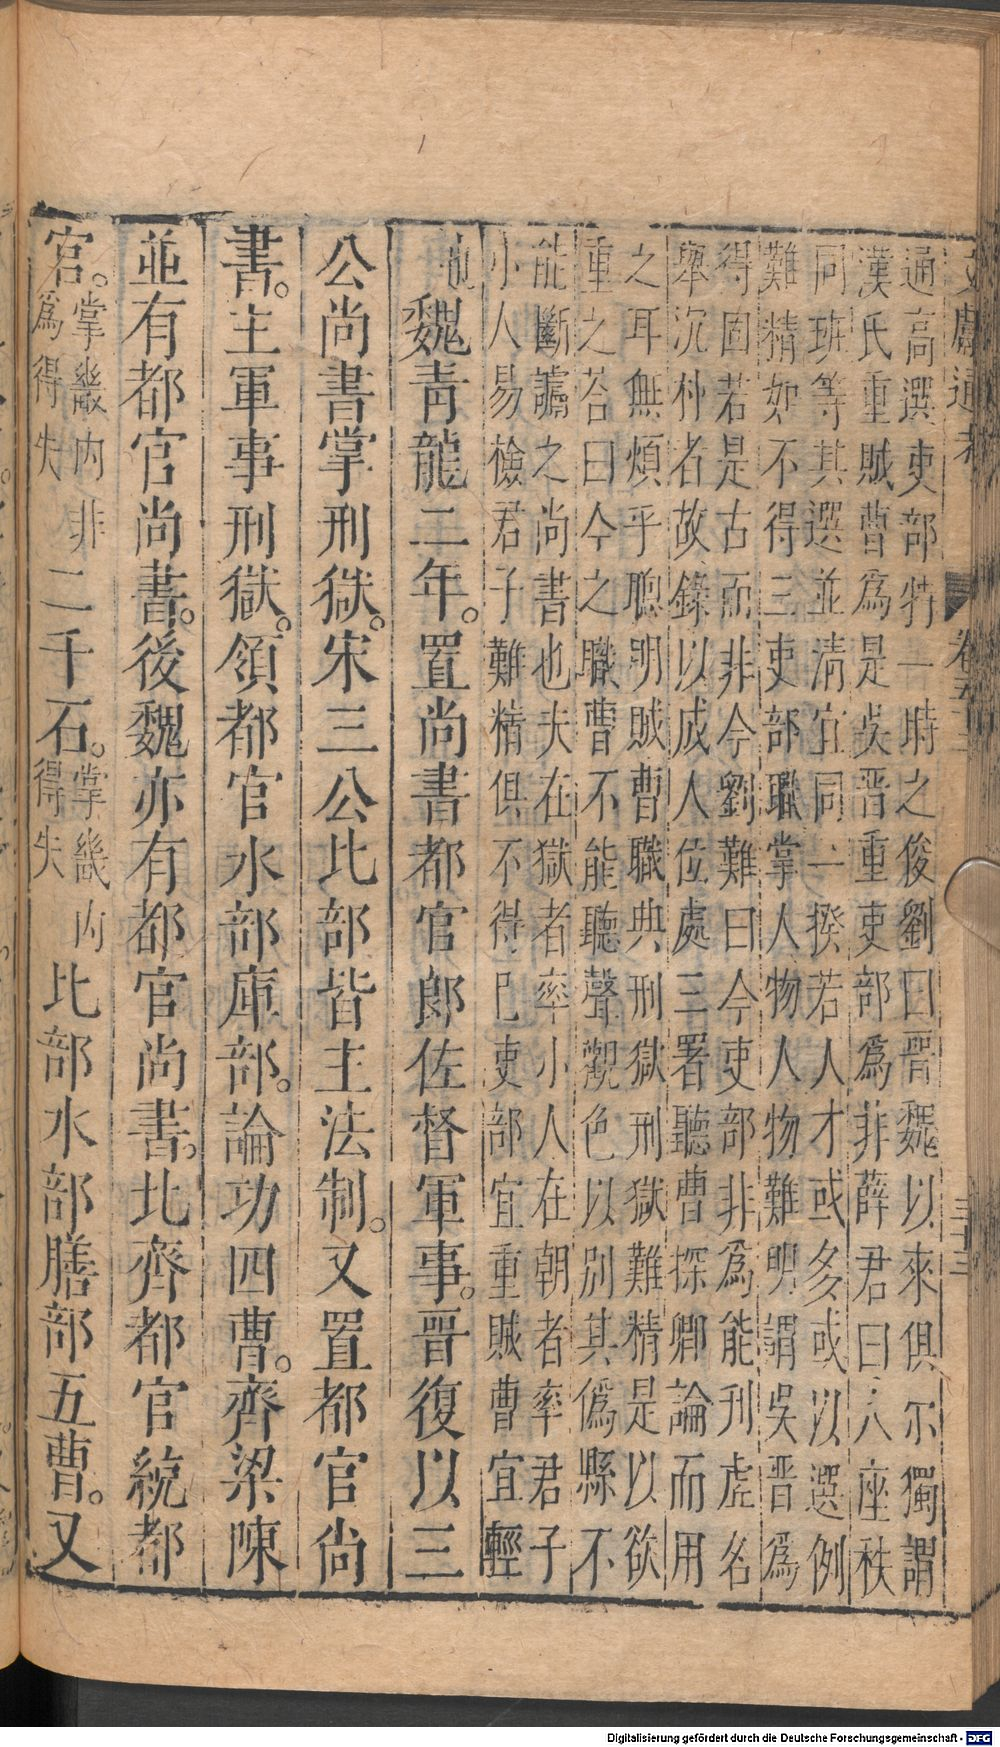 文獻通考 卷五十二 三十三
通高選吏部特一時之俊劉曰晉魏以來俱尓獨謂
漢氏重賊曹爲是吳晉重吏部爲非薛君曰八座秩
同班等其選並清宜同一揆若人才或多或以選例
難精如不得三吏部職掌人物人物難明謂吳晉爲
得固若是古而非今劉難曰今吏部非爲能刋虗名
舉沉朴者故錄以成人位處三署聽曹探卿論而用
之耳無煩乎聰明賊曹職典刑獄刑獄難精是以欲
重之荅曰今之職曹不能聽聲觀色以別其僞縣不
能斷讞之尚書也夫在獄者率小人在朝者率君子
小人易檢君子難精俱不得已吏部宜重賊曹宜輕
魏青龍二年。置尚書都官郎佐督軍事。晉復以三
公尚書掌刑獄。宋三公比部皆主法制。又置都官尚
書。主軍事刑獄。領都官水部庫部。論功四曹。齊梁陳
並有都官尚書。後魏亦有都官尚書。北齊都官統都
官。掌畿内非爲得失二千石。掌畿内得失比部水部膳部五曹。又
Digitalisierung gefördert durch die Deutsche Forschungsgemeinschaft - DFG